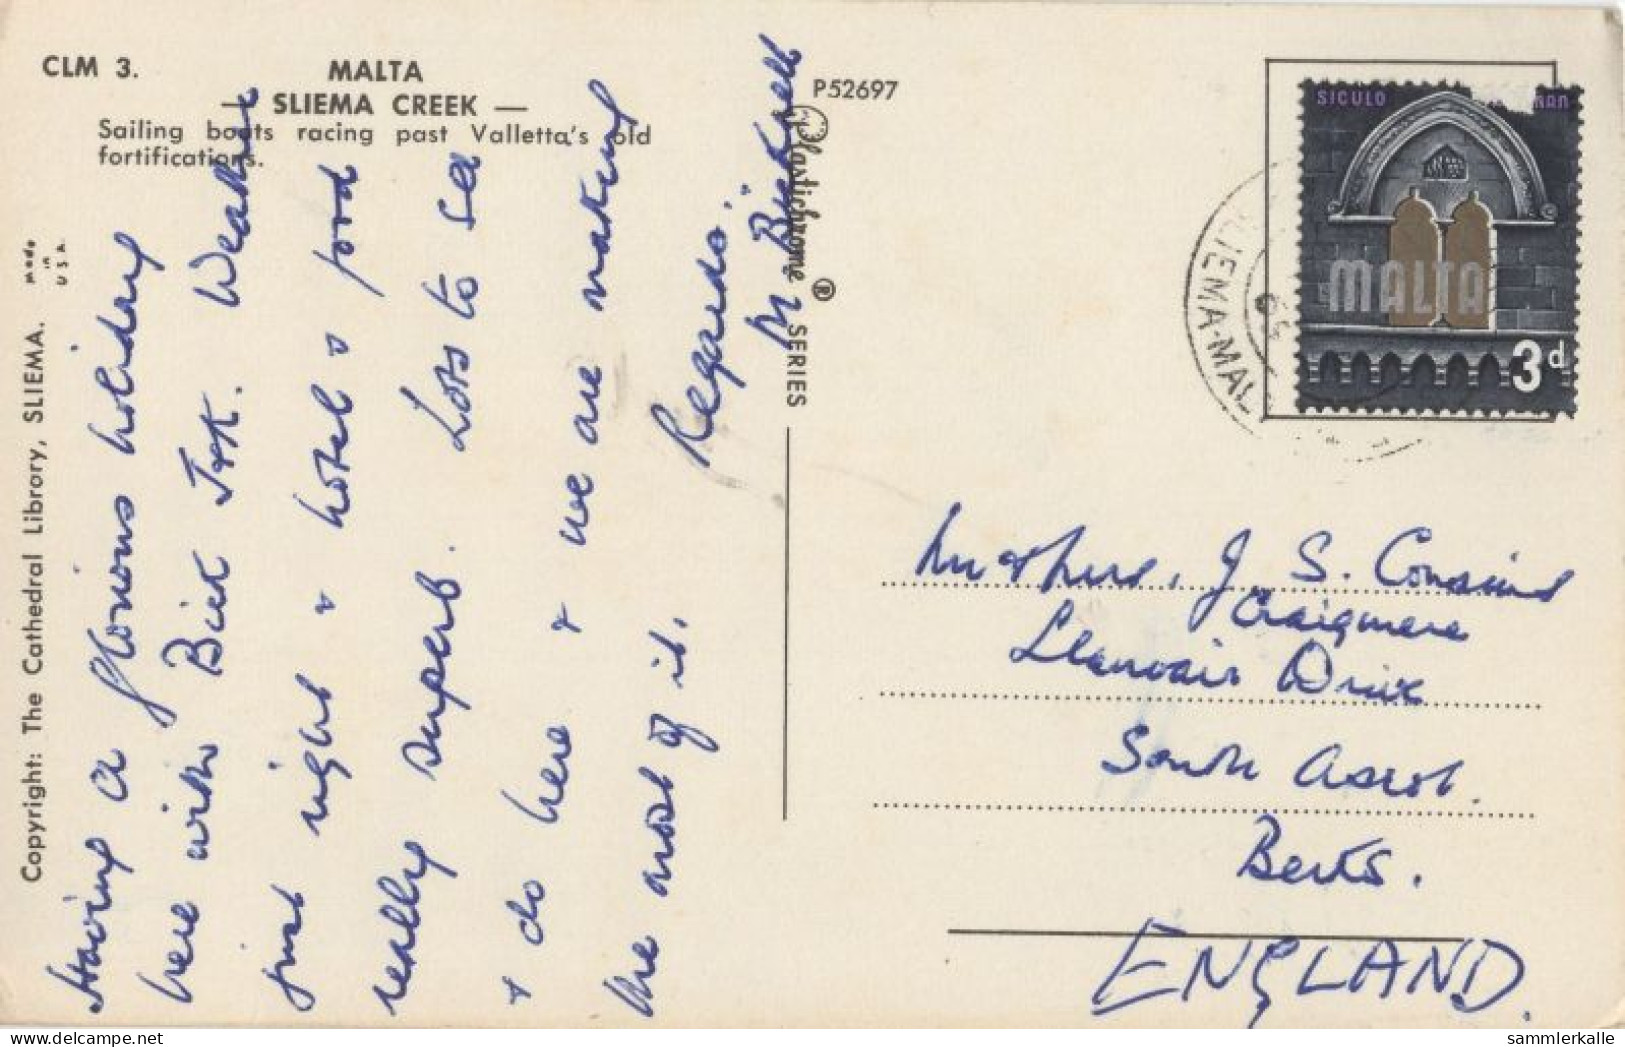 CLM 3.
MALTA
— SLIEMA CREEK —
Sailing boats racing past Valletta's old
fortifications.
P52697
Made
in
U S A.
Copyright: The Cathedral Library, SLIEMA.
Plastichrome ® SERIES
Having a glorious holiday
here with Bick. Weather
just right & hotel & food
really superb. Lots to see
& do here & we are making
the most of it.
Regards.
M Bicknell
SICULO
MALTA
3d
SLIEMA·MAL
Mr & Mrs. J. S. Cousins
Craigmere
Llanvair Drive
South Ascot.
Berks.
ENGLAND.
sammlerkalle